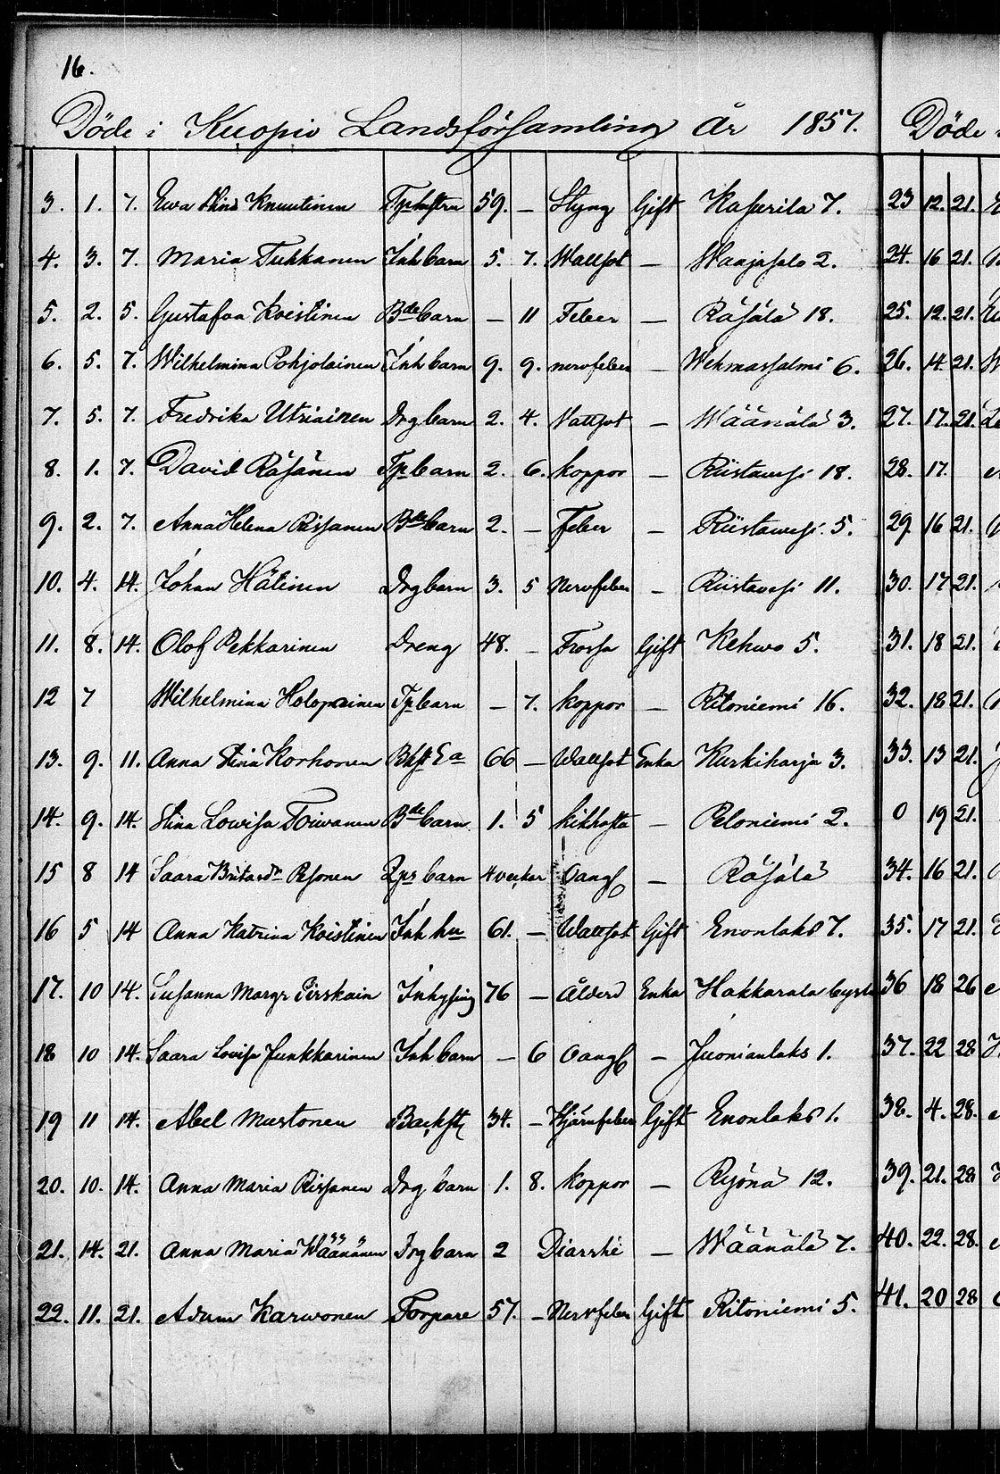 16.
Döde i Kuopio Landsförsamling År 1857. Döde
3. 1. 7. Ewa Stina Knuutinen 59. — Styng Gift Kasurila 7. 23 12. 21.
4. 3. 7. Maria Tukkanen Inh barn 5. 7. Wattsot — Waajasalo 2. 24. 16 21.
5. 2. 5. Gustafva Koistinen Bde barn — 11 Feber — Räsälä 18. 25. 12. 21.
6. 5. 7. Wilhelmina Pohjolainen Inh barn 9. 9. nervfeber — Wehmassalmi 6. 26. 14 21.
7. 5. 7. Fredrika Utriainen Drg barn 2. 4. Vattsot — Wäänälä 3. 27. 17. 21.
8. 1. 7. David Räsänen Tp barn 2. 6. koppor — Riistavesi 18. 28. 17.
9. 2. 7. Anna Helena Rissanen Bde barn 2. — Feber — Riistavesi 5. 29 16 21.
10. 4. 14. Johan Hätinen Drg barn 3. 5 Nervfeber — Riistavesi 11. 30. 17 21.
11. 8. 14. Olof Pekkarinen Dreng 48. — Frossa Gift Kehwo 5. 31. 18 21.
12 7 Wilhelmina Holopainen Tp barn — 7. koppor — Ritoniemi 16. 32. 18 21.
13. 9. 11. Anna Stina Korhonen Bkst Ea 66 — Wattsot Enka Kurkiharju 3. 33. 13 21.
14. 9. 14. Stina Lowisa Toiwanen Bde barn 1. 5 kikhosta — Peloniemi 2. 0 19 21.
15 8 14 Saara Brita barn 4 veckor — Räsälä 34. 16 21.
16 5 14 Anna Katrina Koistinen Inh hu 61. — Wattsot Gift Enonlaks 7. 35. 17 21.
17. 10 14. Susanna Margr Pirskain Inhysing 76 — Ålderd Enka Hakkarala 36 18 26
18 10 14. Saara Lovisa Junkkarinen Inh barn — 6 — Juonianlaks 1. 37. 22 28
19 11 14. Abel Mustonen Backst 34. — Hjärnfeber Gift Enonlaks 1. 38. 4. 28.
20. 10. 14. Anna Maria Rissanen Drg barn 1. 8. koppor — Ryönä 12. 39. 21. 28
21. 14. 21. Anna Maria Wäänänen Drg barn 2 Diarrhé — Wäänälä 7. 40. 22. 28.
22. 11. 21. Adam Karwonen Torpare 57. — Nervfeber Gift Ritoniemi 5. 41. 20 28